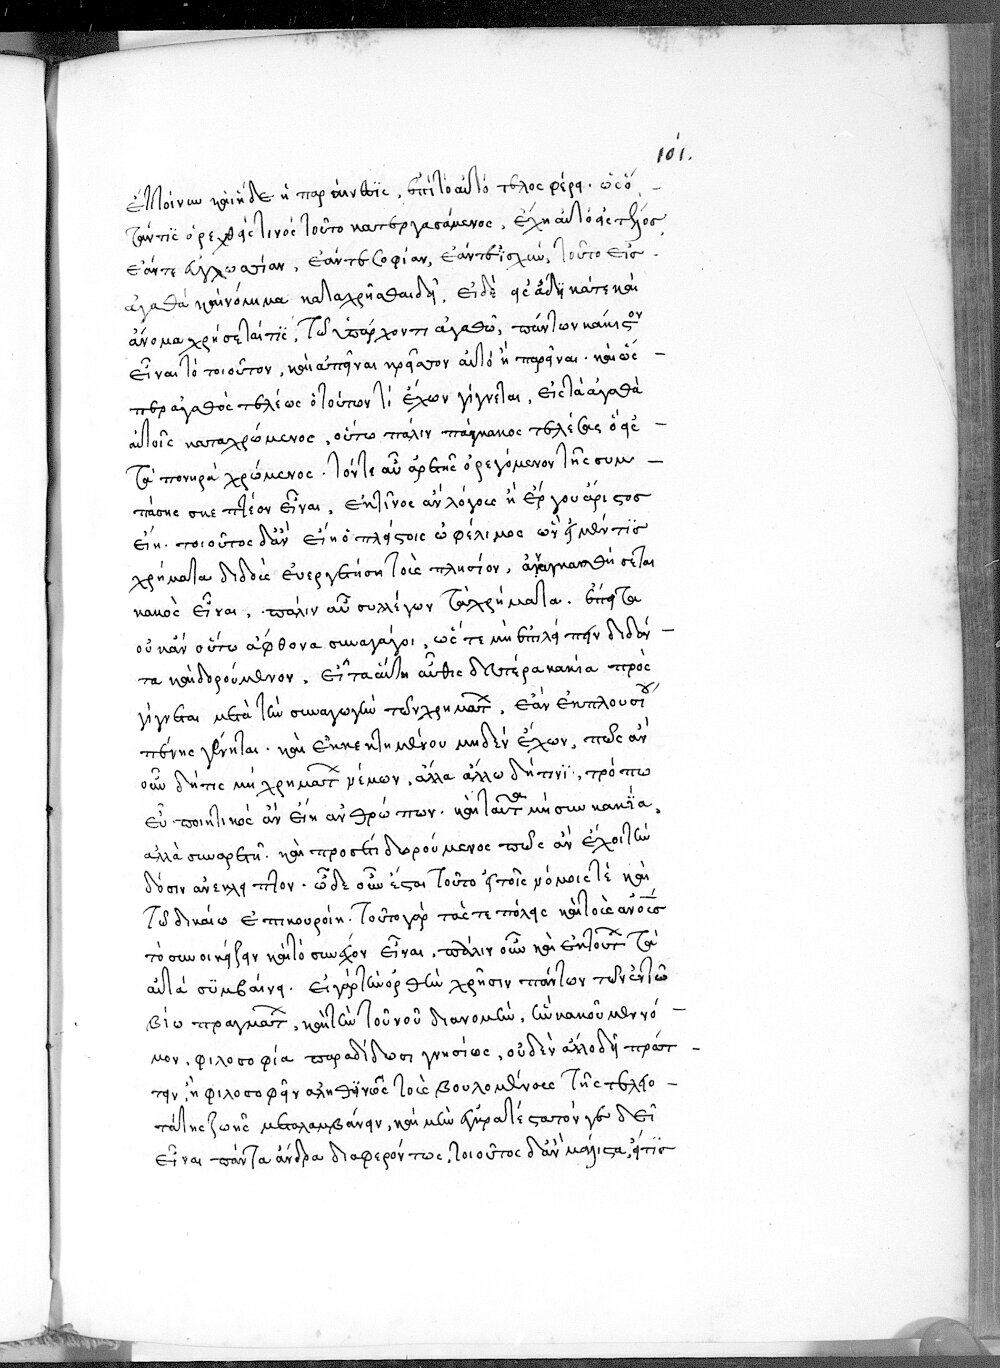 101.
ἐπαίνων καὶ ἥδε ἡ παραίνεσις, ἐπὶ τὸ αὐτὸ τέλος φέρει. ὡς ὅ –
ταν τις ὀρεχθείς τινος τοῦτο κατεργασάμενος, ἔχη αὐτὸ εἰς τέλος,
ἐάν τε εὐγλωσσίαν, ἐάν τε σοφίαν, ἐάν τε ἰσχύν, τοῦτο εἰς
ἀγαθὰ καὶ νόμιμα καταχρῆσθαι δεῖ, εἰ δὲ εἰς ἄδικά τε καὶ
ἄνομα χρήσεταί τις, τῶ ὑπάρχοντι ἀγαθῶ, πάντων κάκιστον
εἶναι τὸ τοιοῦτον, καὶ ἀπεῖναι κρεῖσσον αὐτὸ ἢ παρεῖναι. καὶ ὥς –
περ ἀγαθὸς τελέως ὁ τούτων τι ἔχων γίγνεται, εἰς τὰ ἀγαθὰ
αὐτοῖς καταχρώμενος, οὕτω πάλιν πάγκακος τελέως ὁ εἰς –
τὰ πονηρὰ χρώμενος. τόν τε αὖ ἀρετῆς ὀρεγόμενον τῆς συμ –
πάσης σκεπτέον εἶναι, ἐκ τίνος ἂν λόγου ἢ ἔργου ἄριστος
εἴη. τοιοῦτος δ' ἂν εἴη ὁ πλείστοις ὠφέλιμος ὢν εἰ μέν τις
χρήματα διδοὺς εὐεργετήσει τοὺς πλησίον, ἀναγκασθήσεται
κακὸς εἶναι, πάλιν αὖ συλλέγων τὰ χρήματα. ἔπειτα
οὐκ ἂν οὕτω ἄφθονα συναγάγοι, ὥστε μὴ ἐπιλείπειν διδόν –
τα καὶ δωρούμενον, εἶτα αὕτη αὖθις δευτέρα κακία προς
γίγνεται μετὰ τὴν συναγωγὴν τῶν χρημάτων, ἐὰν ἐκ πλουσίου
πένης γένηται. καὶ ἐκ κεκτημένου μηδὲν ἔχων, πῶς ἂν
οὖν δή τις μὴ χρημάτων νέμων, ἀλλὰ ἄλλω δή τινι, τρόπω
εὖ ποιητικὸς ἂν εἴη ἀνθρώπων. καὶ ταῦτα μὴ σὺν κακία,
ἀλλὰ σὺν ἀρετῆ. καὶ προσέτι δωρούμενος πῶς ἂν ἔχοι τὴν
δόσιν ἀνέκλειπτον. ὧδε οὖν ἔσται τοῦτο εἰ τοῖς νόμοις τὲ καὶ
τῶ δικαίω ἐπικουροίη. τοῦτο γὰρ τάς τε πόλεις καὶ τοὺς ἀνους
τὸ συνοικίζειν καὶ τὸ συνέχον εἶναι, πάλιν οὖν καὶ ἐκ τούτων τὰ
αὐτὰ συμβαίνει. εἰ γὰρ τὴν ὀρθὴν χρῆσιν πάντων τῶν ἐν τῶ
βίω πραγμάτων, καὶ τὴν τοῦ νοῦ διανομὴν, ἣν καλοῦμεν νό –
μον, φιλοσοφία παραδίδωσι γνησίως, οὐδὲν ἄλλο δεῖ πράτ –
τειν, ἢ φιλοσοφεῖν ἀληθινῶς τοὺς βουλομένους τῆς τελειο –
τάτης ζωῆς μεταλαμβάνειν, καὶ μὴν ἐγκρατέστατόν γε δεῖ
εἶναι πάντα ἄνδρα διαφερόντως, τοιοῦτος δ' ἂν μάλιστα, εἴ τις